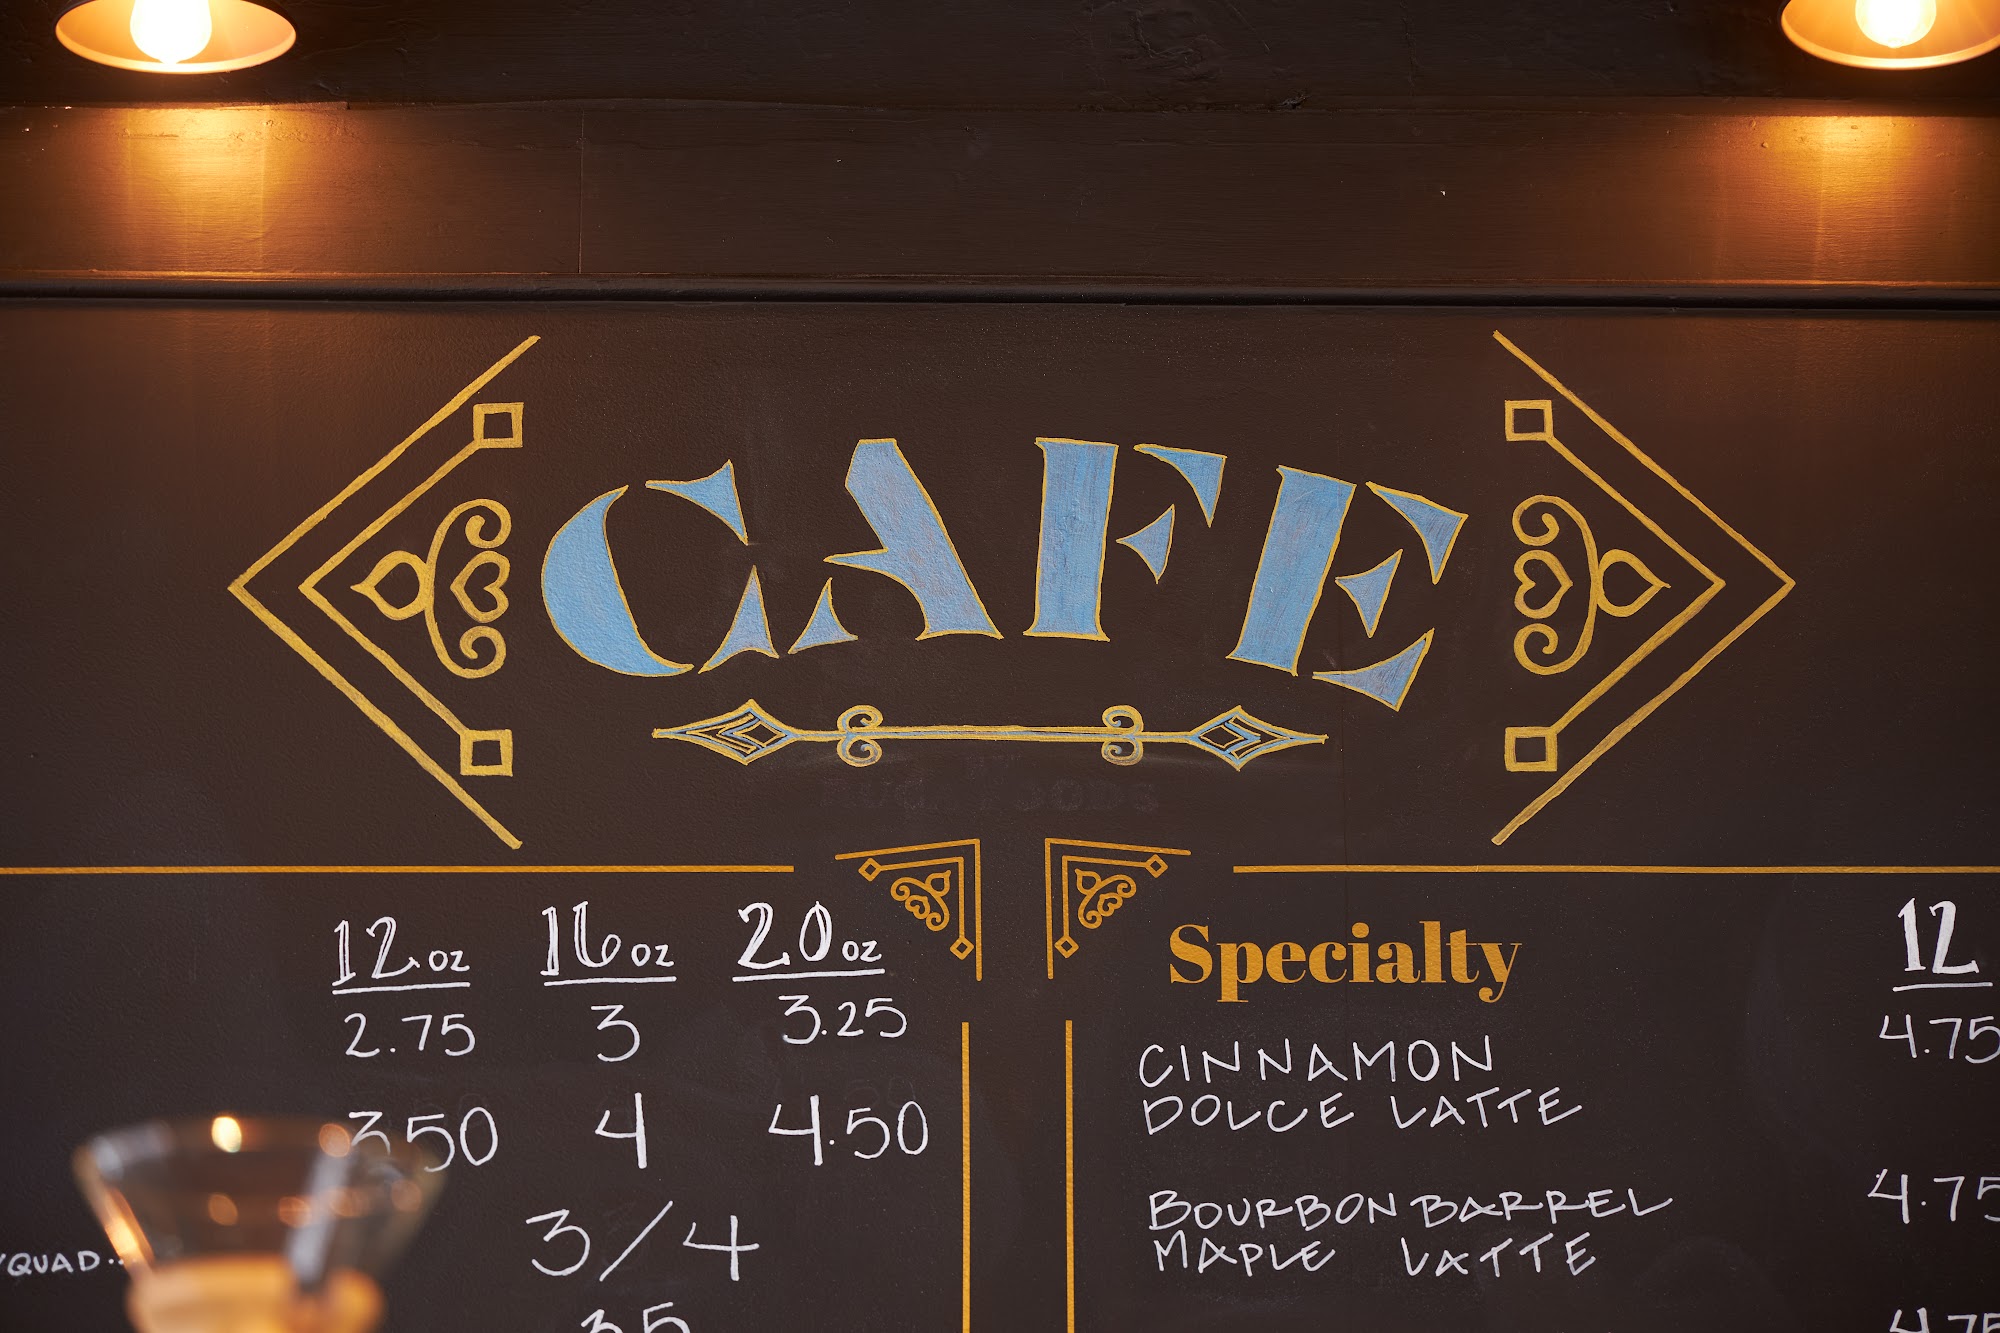 CAFE
12 oz 16 oz 20 oz
2.75 3 3.25
3.50 4 4.50
3/4
QUAD
Specialty
12
4.75
CINNAMON
DOLCE LATTE
BOURBON BARREL
MAPLE LATTE
4.75